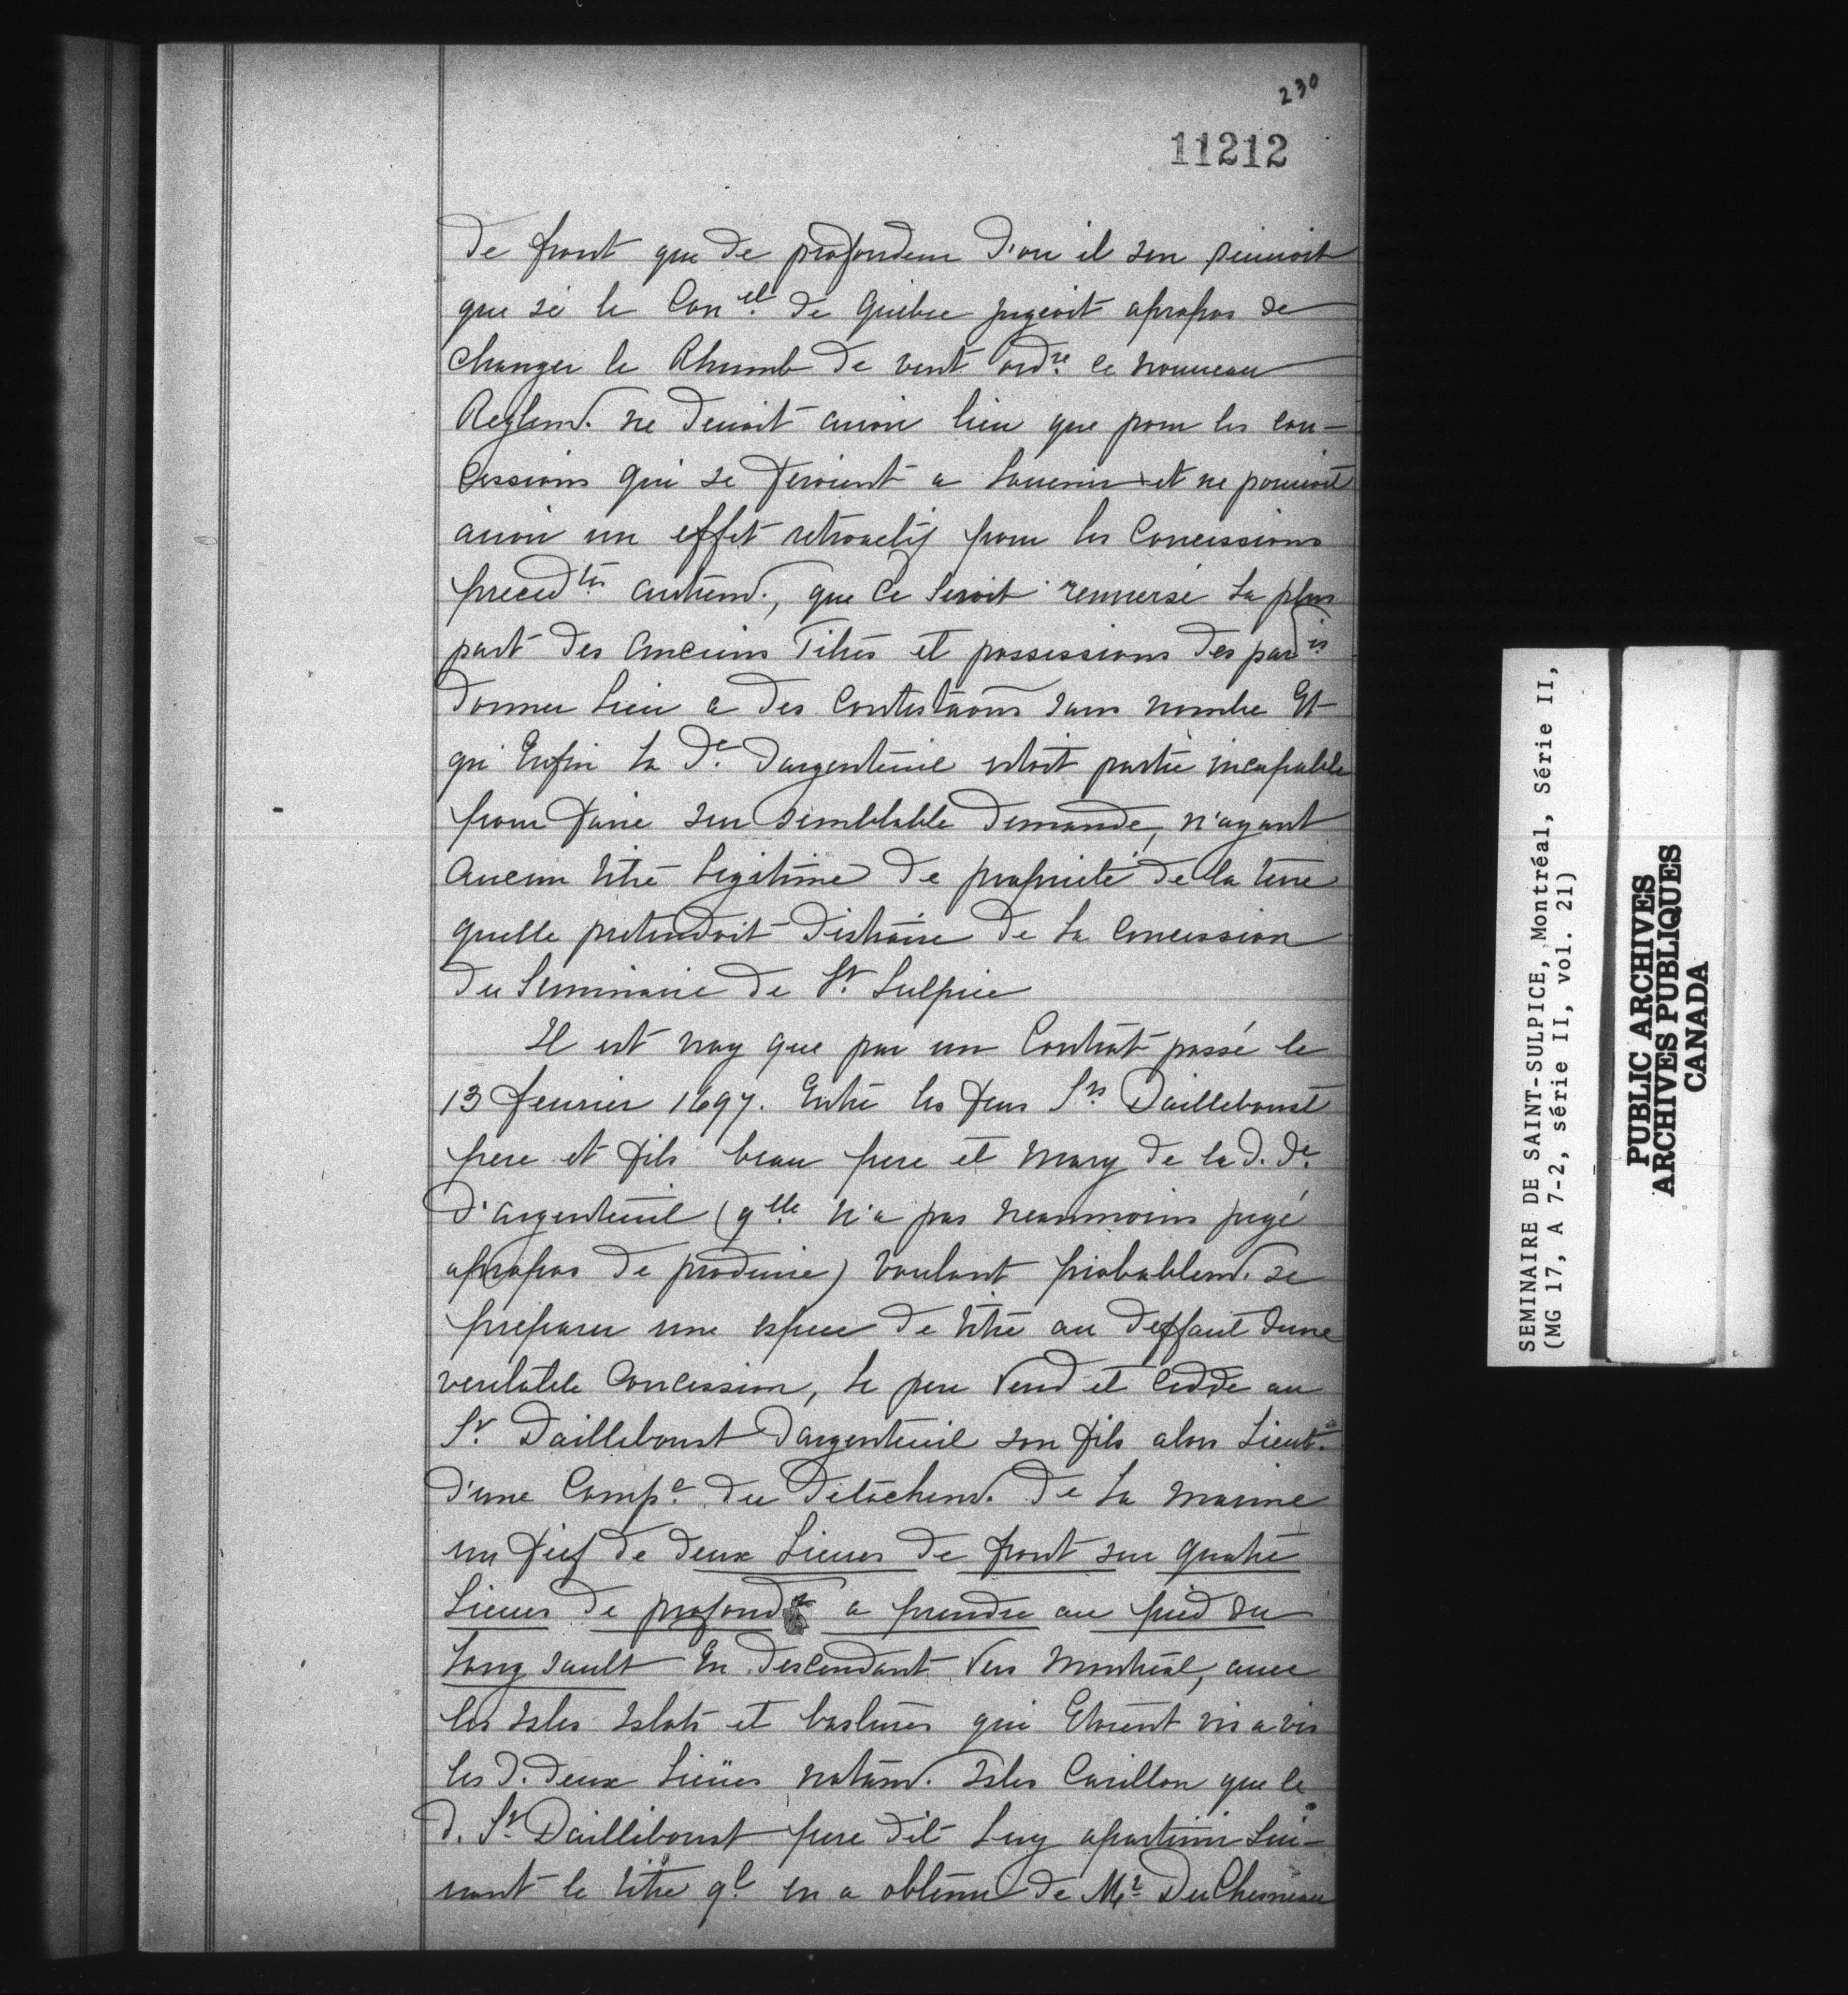 230
11212
de front que de profondeur d'ou il sen suivoit
que si le Con.el de Quebec jugeoit apropos de
changer le Rhumb de vent ord.re ce nouveau
Reglem.t ne devoit avoir lieu que pour les con-
cessions qui se feroient a Lavenir et ne pouvoit
avoir un effet retroactif pour les Concessions
preced.tes autrem.t, que Ce Seroit renversé La plus
part des anciens Titres et possessions des par.ers
donner Lieu a des Contestaons sans nombre Et
qu'Enfin La D.e Dargenteuil etoit partie incapable
pour faire un semblable demande, n'ayant
Aucun titre Legitime de proprieté de la terre
quelle pretendoit distraire de La Concession
du Seminaire de S.t Sulpice
Il est vray que par un Contrat passé le
13 fevrier 1697. Entre les feus S.rs Dailleboust
pere et fils beau pere et mary de la d. D.e
d'argenteuil (q.lle n'a pas neanmoins jugé
apropos de produire) voulant probablem.t se
preparer une espece de titre au deffaut dune
veritable Concession, Le pere Vend et Cedde au
S.r Dailleboust Dargenteuil son fils alors Lieut.t
d'une Comp.e du Détachem.t de La marine
un fief de deux Lieues de front sur quatre
Lieues de profond.r a prendre au pied du
Long sault En descendant Vers Montréal, avec
les Isles Islots et bastures qui Etoient vis a vis
les d. deux Lieües notam.t Isles Carillon que le
d. S.r Dailleboust pere dit Luy apartenir Sui-
vant le titre q.l en a obtenu de M.r DuChesneau
SEMINAIRE DE SAINT-SULPICE, Montréal, Série II,
(MG 17, A 7-2, série II, vol. 21)
PUBLIC ARCHIVES
ARCHIVES PUBLIQUES
CANADA